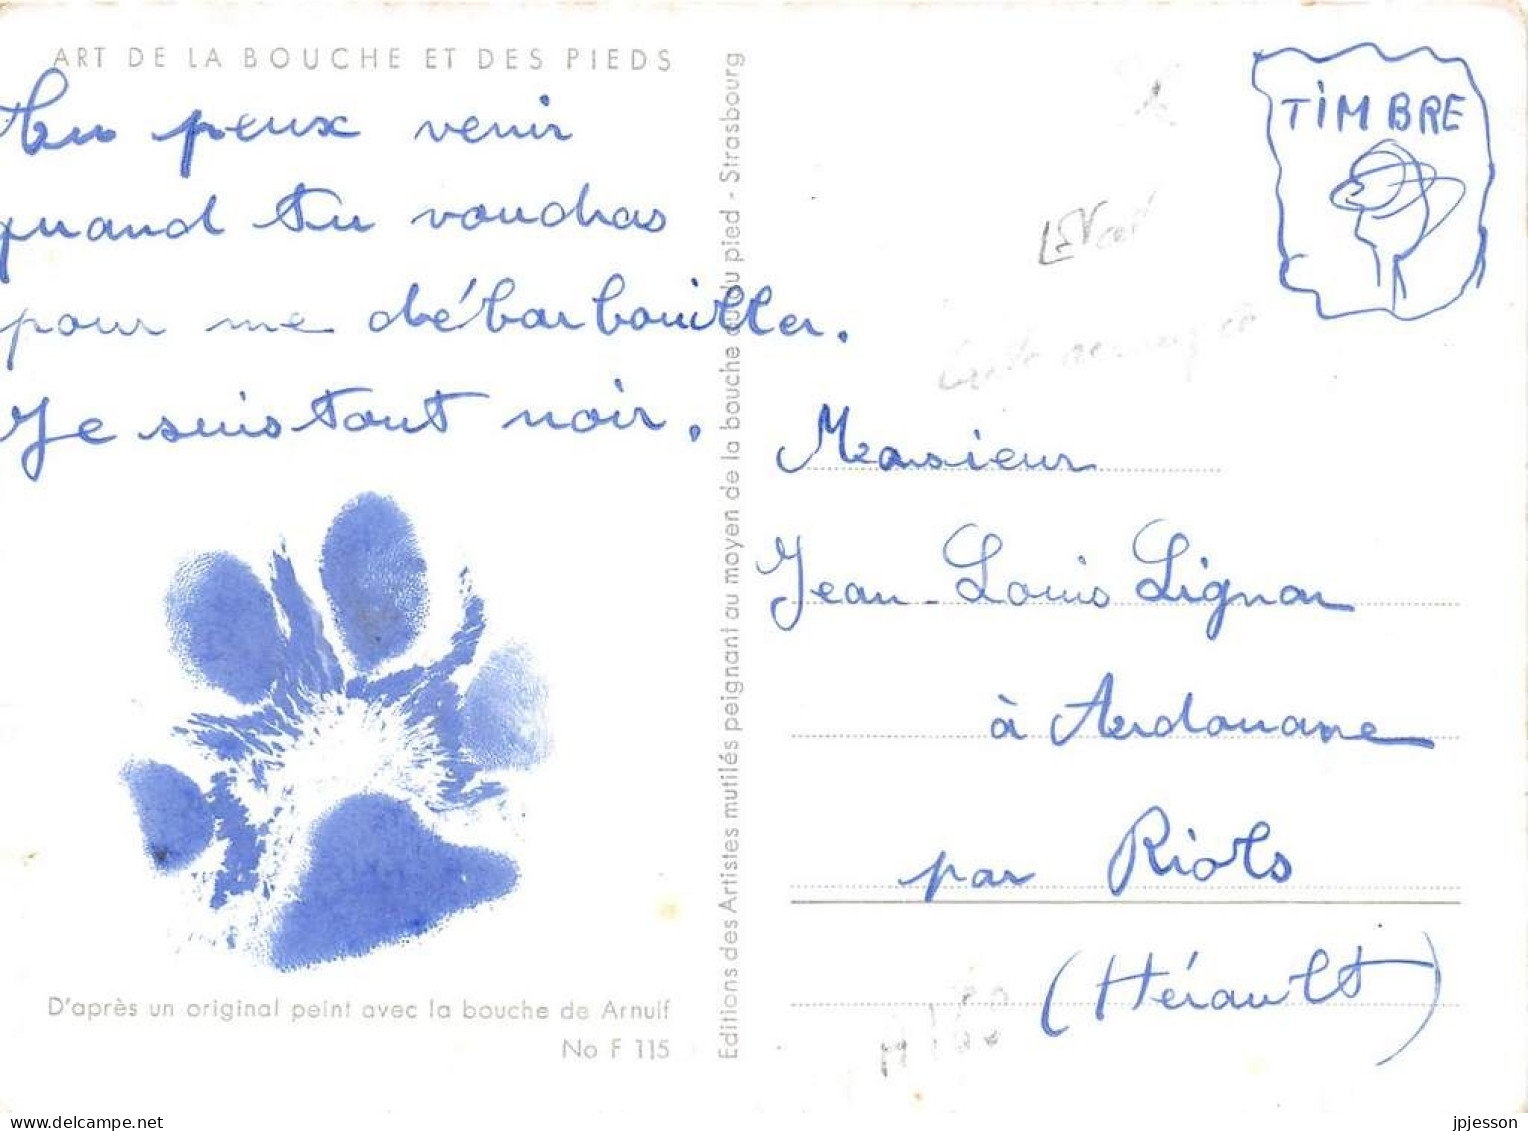 ART DE LA BOUCHE ET DES PIEDS
Tu peux venir
quand tu voudras
pour me débarbouiller.
Je suis tout noir.
D'après un original peint avec la bouche de Arnulf
No F 115
Editions des Artistes mutilés peignant au moyen de la bouche ou du pied - Strasbourg
TIMBRE
Monsieur
Jean-Louis Lignon
à Ardouane
par Riols
(Hérault)
jpjesson